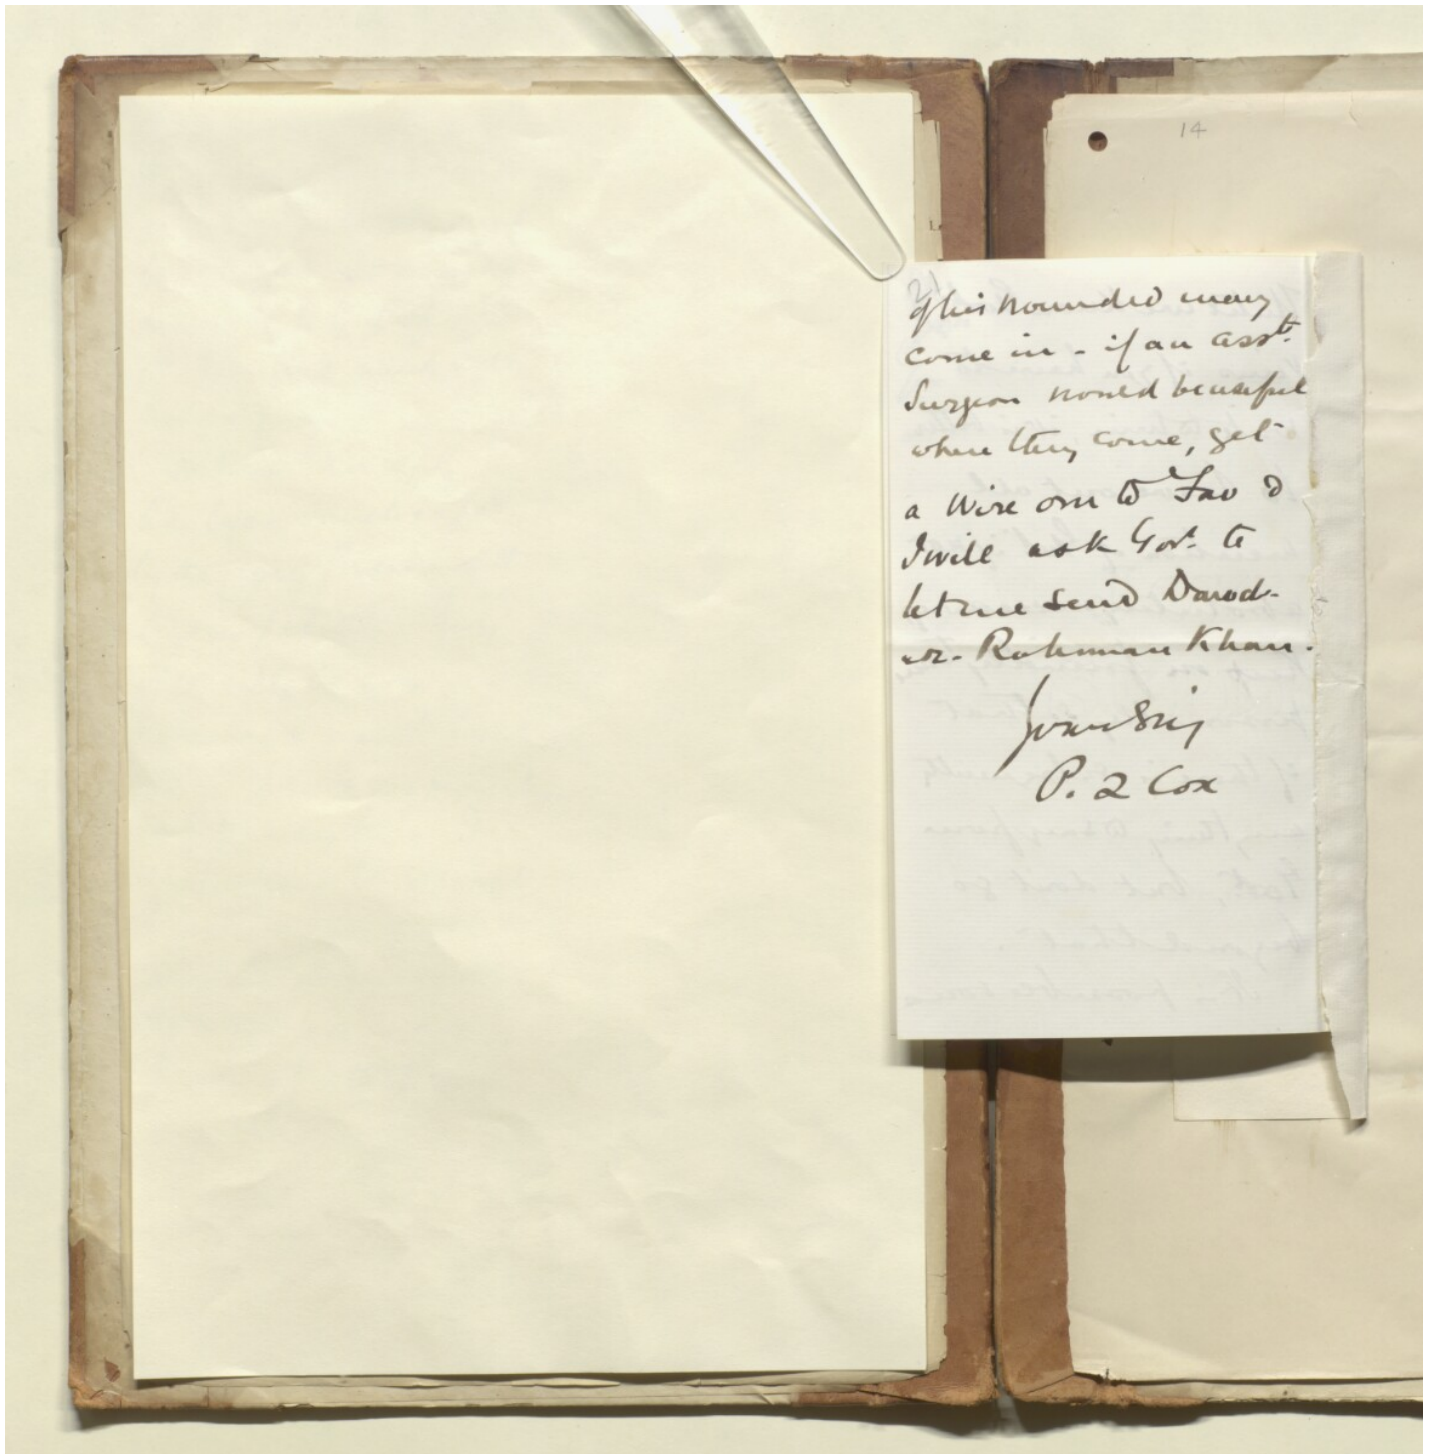 14
of his wounded may
come in - if an asst.
Surgeon would be useful
when they come, get
a wire on to Fao &
I will ask Govt. to
let me send Dawod-
ur- Rahman Khan.
P. Z Cox